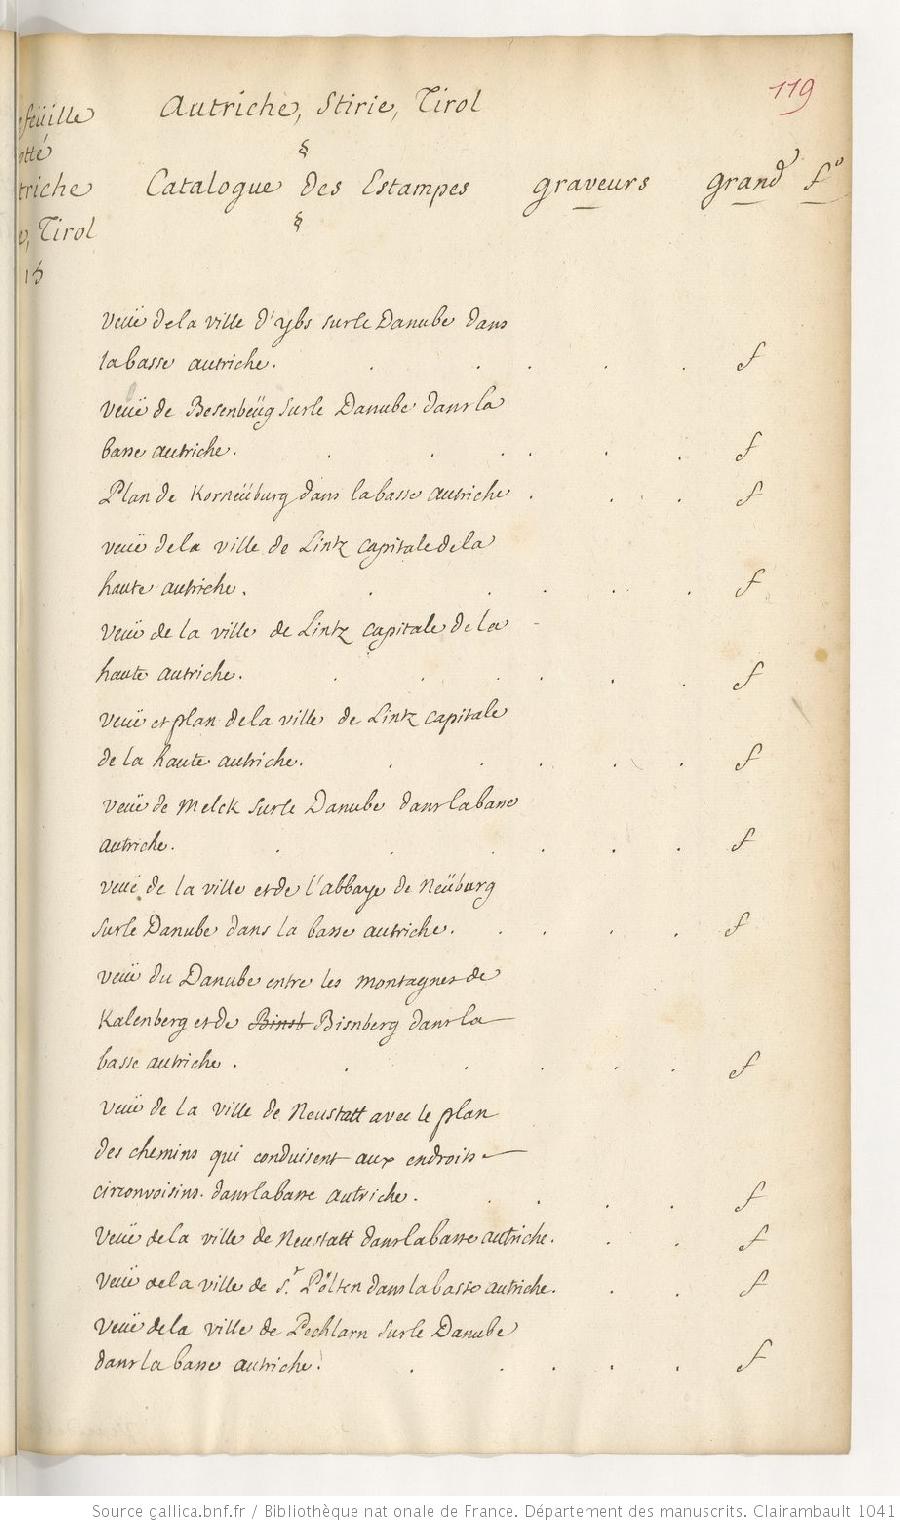 119
Autriche, Stirie, Tirol
feüille
otté
triche
Tirol
15
§
Catalogue des Estampes graveurs grand fo
§
veüe de la ville d'ybs sur le Danube dans
la basse autriche. f
veüe de Besenbeüg sur le Danube dans la
basse autriche. f
Plan de Korneüburg dans la basse autriche. f
veüe de la ville de Lintz capitale de la
haute autriche. f
veüe de la ville de Lintz capitale de la
haute autriche. f
veüe et plan de la ville de Lintz capitale
de la haute autriche. f
veüe de Melck sur le Danube dans la basse
autriche. f
veüe de la ville et de l'abbaye de Neüburg
sur le Danube dans la basse autriche. f
veüe du Danube entre les montagnes de
Kalenberg et de Binsb Bisnberg dans la
basse autriche. f
veüe de la ville de Neustatt avec le plan
des chemins qui conduisent aux endroits
circonvoisins dans la basse autriche. f
veüe de la ville de Neustatt dans la basse autriche. f
veüe de la ville de St. Pölten dans la basse autriche. f
veüe de la ville de Pechlarn sur le Danube
dans la basse autriche. f
Source gallica.bnf.fr / Bibliothèque nationale de France. Département des manuscrits. Clairambault 1041